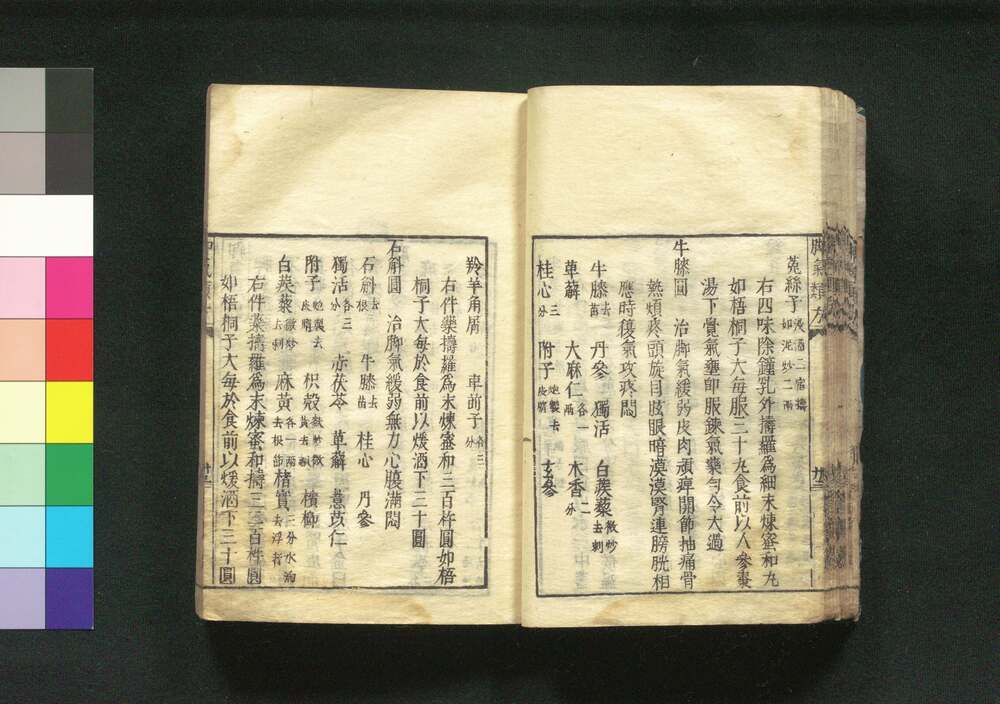 脚氣類方
菟絲子浸酒二宿擣如泥炒二兩
右四味除鍾乳外擣羅爲細末煉蜜和丸
如梧桐子大每服三十丸食前以人參棗
湯下覺氣壅即服鍊氣藥勻令大過
牛膝圓　治脚氣緩弱皮肉頑痺關節抽痛骨
熱煩疼頭旋目眩眼暗漠漠腎連膀胱相
應時復氣攻疼悶
牛膝去苗　丹參　獨活　白蒺藜微炒去刺
萆薢　大麻仁各一兩　木香二分
桂心三分　附子炮裂去皮臍　玄參
廿三
羚羊角屑　車前子各三分
右件藥擣羅爲末煉蜜和三百杵圓如梧
桐子大每於食前以煖酒下三十圓
石斛圓　治脚氣緩弱無力心腹滿悶
石斛去根　牛膝去苗　桂心　丹參
獨活各三分　赤茯苓　萆薢　薏苡仁
附子炮裂去皮臍　枳殼　檳榔
白蒺藜微炒去刺　麻黃去根節各一兩　楮實三分水淘去浮者
右件藥擣羅爲末煉蜜和擣三二百杵圓
如梧桐子大每於食前以煖酒下三十圓